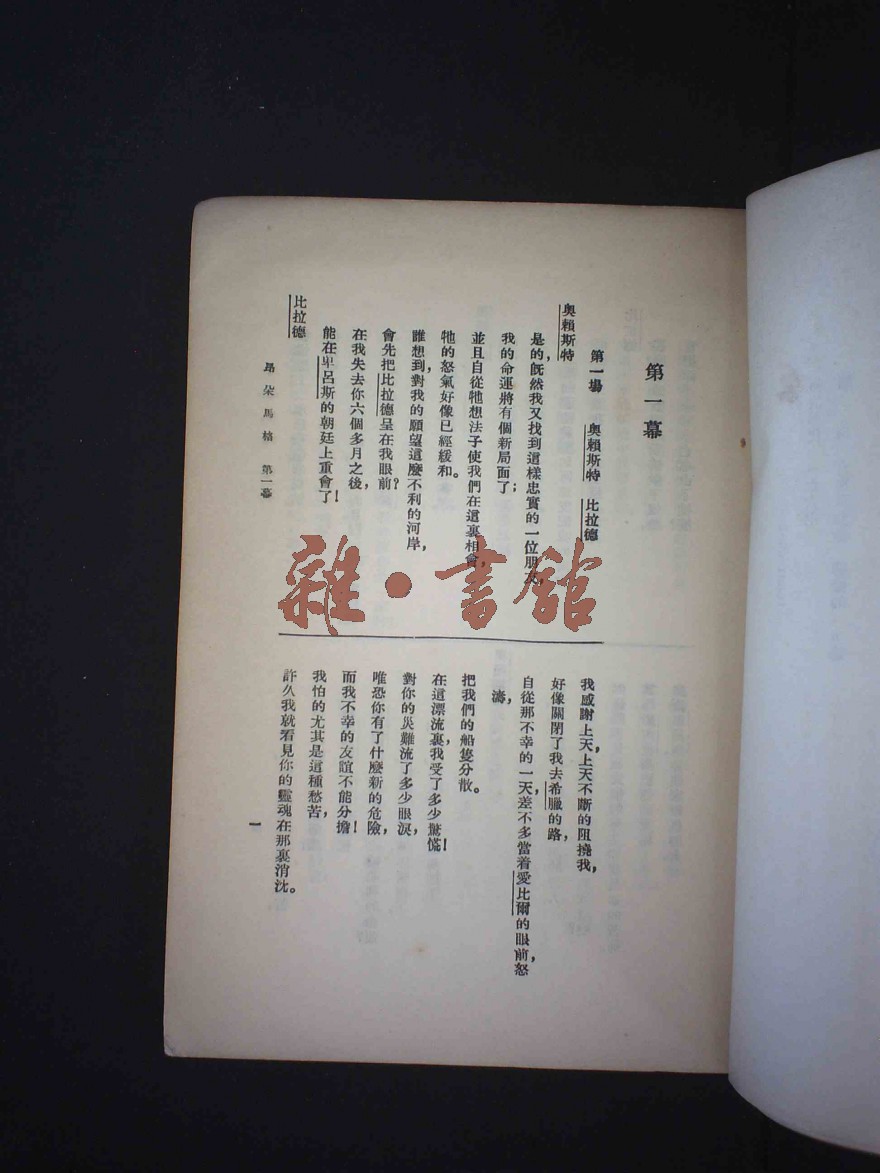 第一幕
第一場　奧賴斯特　比拉德
奧賴斯特
是的，既然我又找到這樣忠實的一位朋友，
我的命運將有個新局面了；
並且自從牠想法子使我們在這裏相會，
牠的怒氣好像已經緩和。
誰想到，對我的願望這麼不利的河岸，
會先把比拉德呈在我眼前？
在我失去你六個多月之後，
能在卑呂斯的朝廷上重會了！
比拉德
我感謝上天，上天不斷的阻撓我，
好像關閉了我去希臘的路，
自從那不幸的一天，差不多當着愛比爾的眼前，怒
濤，
把我們的船隻分散。
在這漂流裏，我受了多少驚慌！
對你的災難流了多少眼淚，
唯恐你有了什麼新的危險，
而我不幸的友誼不能分擔！
我怕的尤其是這種愁苦，
許久我就看見你的靈魂在那裏消沈。
昂朵馬格　第一幕
一
雜·書館